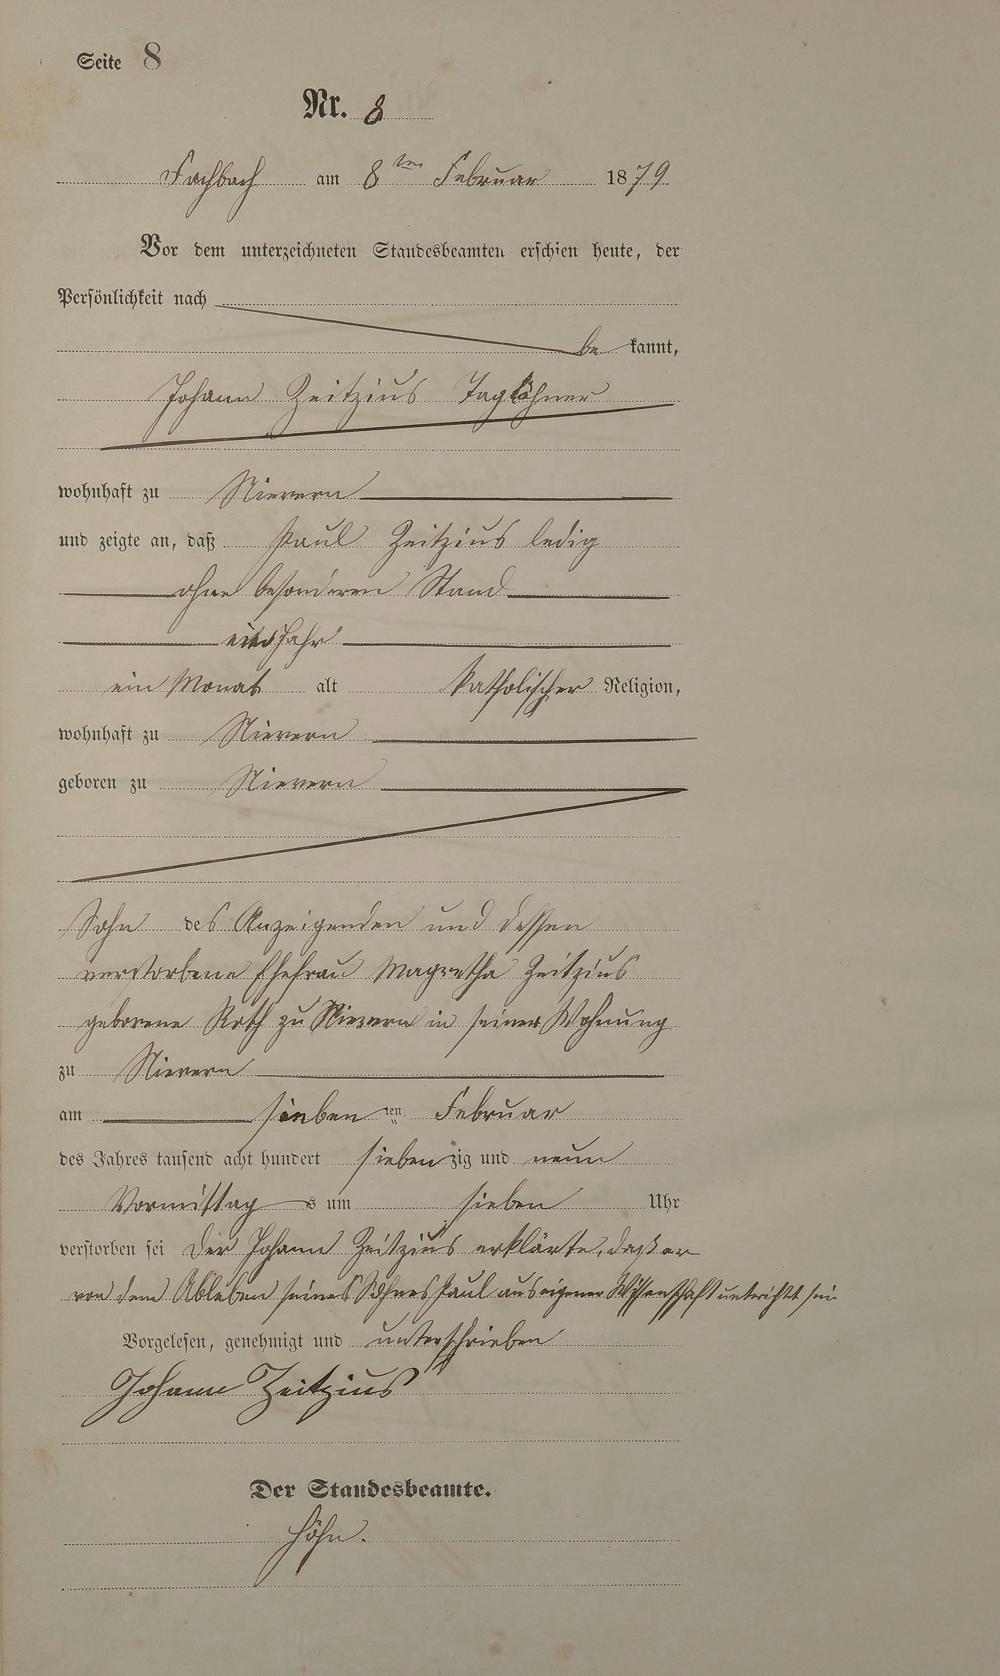 Seite 8
Nr. 8
Fachbach am 8ten Februar 1879
Vor dem unterzeichneten Standesbeamten erschien heute, der
Persönlichkeit nach
be kannt,
Johann Zeitzius Taglöhner
wohnhaft zu Nievern
und zeigte an, daß Paul Zeitzius ledig
ohne besonderen Stand
ein Jahr
ein Monat alt katholischer Religion,
wohnhaft zu Nievern
geboren zu Nievern
Sohn des Anzeigenden und dessen
verstorbene Ehefrau Magretha Zeitzius
geborene Roth zu Nievern in seiner Wohnung
zu Nievern
am sieben ten Februar
des Jahres tausend acht hundert sieben zig und neun
Vormittag s um sieben Uhr
verstorben sei Der Johann Zeitzius erklärte, daß er
von dem Ableben seines Sohnes Paul aus eigener Wissenschaft unterichtet sei
Vorgelesen, genehmigt und unterschrieben
Johann Zeitzius
Der Standesbeamte.
Höhn.